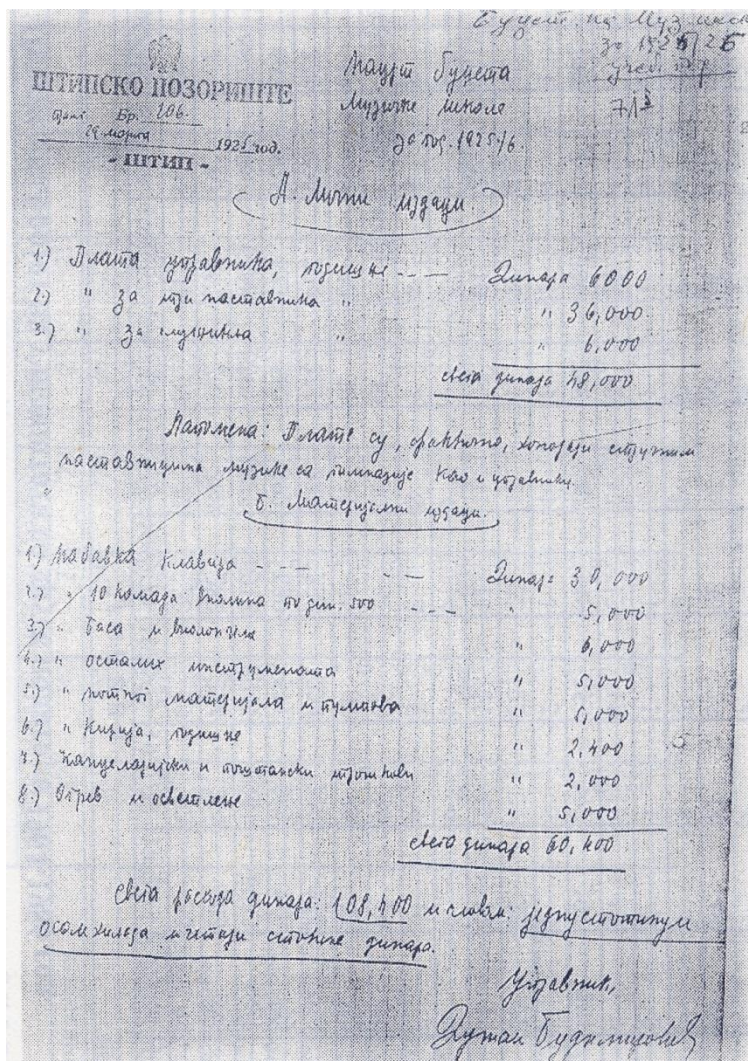 Буџет на Муз. школа
за 1925/26
ШТИПСКО ПОЗОРИШТЕ
Бр. 106
29 марта 1925 год.
- ШТИП -
Нацрт буџета
Музичке школе
за год. 1925/6.
А. Лични издаци.
1.) Плата управника, годишње --- Динара 6000
2.) " за три наставника " " 36,000
3.) " за служитеља " " 6,000
Свега динара 48,000
Напомена: Плате су, фактично, хонорари стручним
наставницима музике са гимназије као и управнику.
Б. Материјални издаци.
1.) Набавка клавира --- -- Динара 30,000
2.) " 10 комада виолина по дин. 500 --- " 5,000
3.) " Баса и виолончела " 6,000
4.) " осталих инструмената " 5,000
5.) " нотног материјала и пултова " 5,000
6.) " Кирија, годишње " 2,400
7.) Канцеларијски и поштански трошкови " 2,000
8.) Огрев и осветлење " 5,000
Свега динара 60,400
Свега расхода динара: 108,400 и словом: једнустотинуи
осамхиљада и четири стотине динара.
Управник,
Душан Будимировић